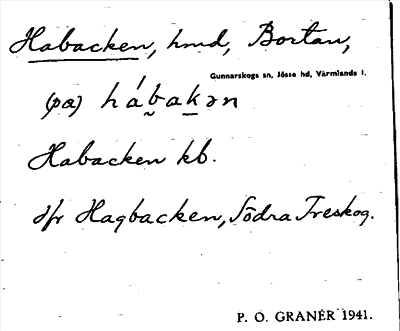 Habacken, hmd, Bortan,
Gunnarskogs sn, Jösse hd, Värmlands l.
(pa) hábakən
Habacken kb.
Jfr Hagbacken, Södra Treskog.
P. O. GRANÉR 1941.